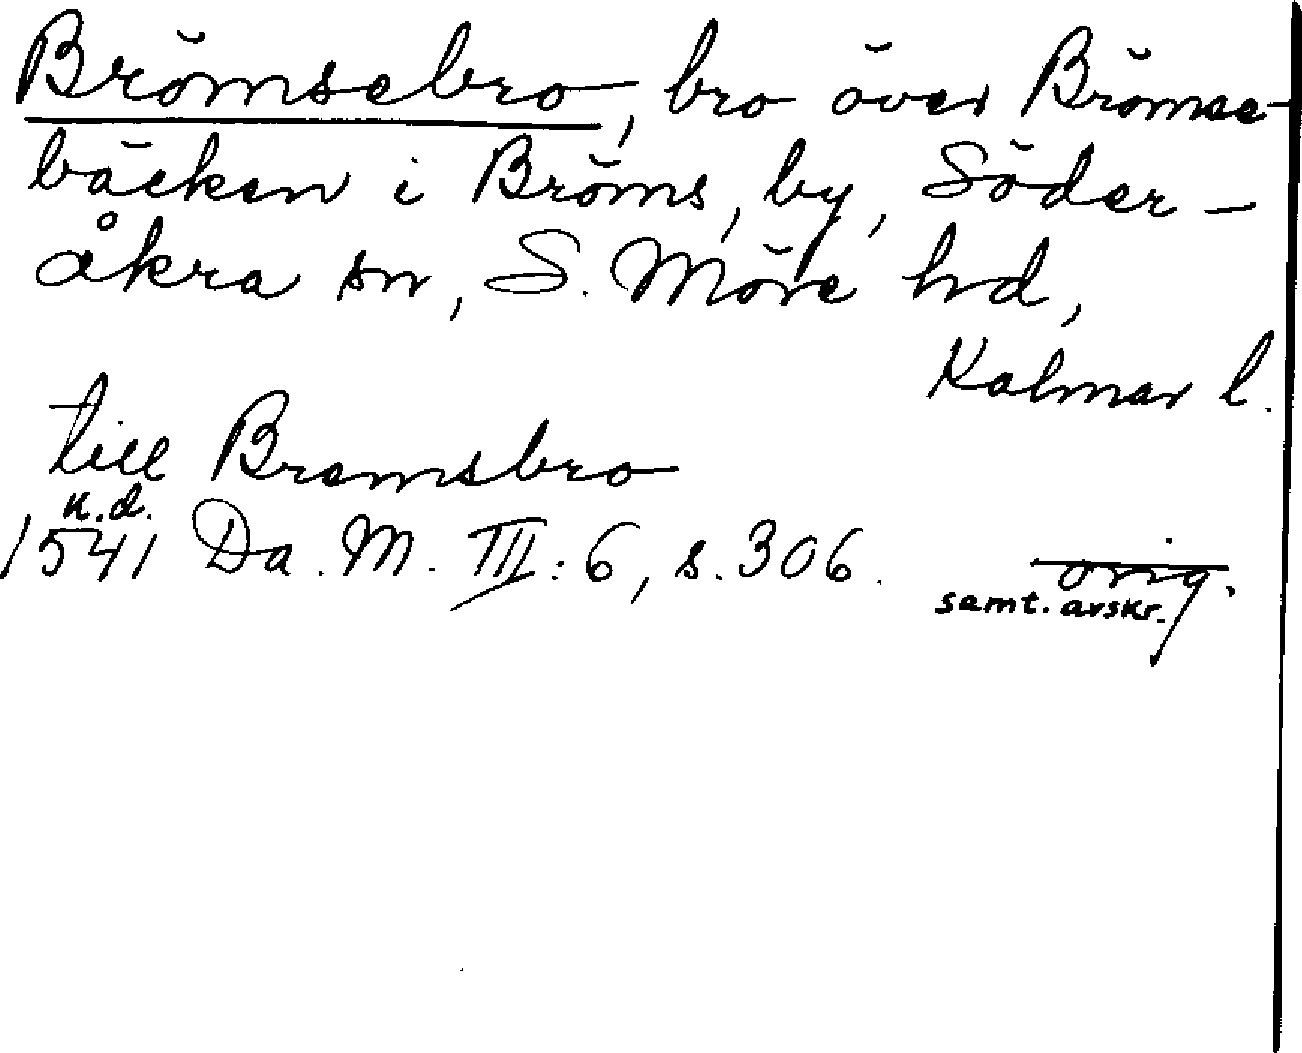 Brömsebro, bro över Brömse-
bäcken i Bröms, by, Söder-
åkra sn, S. Möre hd,
Kalmar l.
till Bremsbro
n.d.
1541 Da. M. III:6, s. 306. orig.
samt. avskr.